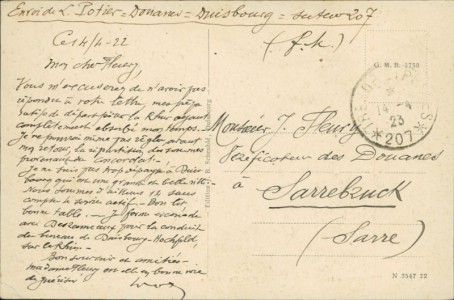 Envoi de L. Potier - Douanes - Duisbourg - secteur 207
(F. M.)
Ce 14/4-23
Mon cher Fleury,
Vous m'excuserez de n'avoir pas
répondu à votre lettre, mes prépa
ratifs de départ pour la Rhur ayant
complètement absorbé mon temps.
Je ne pourrai même pas régler, avant
mon retour, la répartition des sommes
provenant du concordat.
Je ne suis pas trop dépaysé à Duis
bourg qui est une grande et belle ville.
Nous sommes d'ailleurs 12 sans
compter le service actif. Bon lit,
bonne table.
avec
du bureau de Duisbourg-Hochfeld,
sur le Rhin.
Bon souvenir et amitiés.
Madame Fleury est-elle en bonne voie
de guérison?
G. M. B. 3750
14 - 4
23
*207*
Monsieur J. Fleury
Vérificateur des Douanes
à Sarrebruck
(Sarre)
N 3547 22